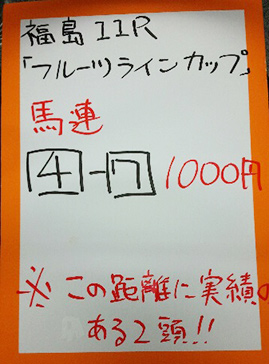 福島11R
「フルーツラインカップ」
馬連
4-7 1000円
※この距離に実績の
ある2頭!!